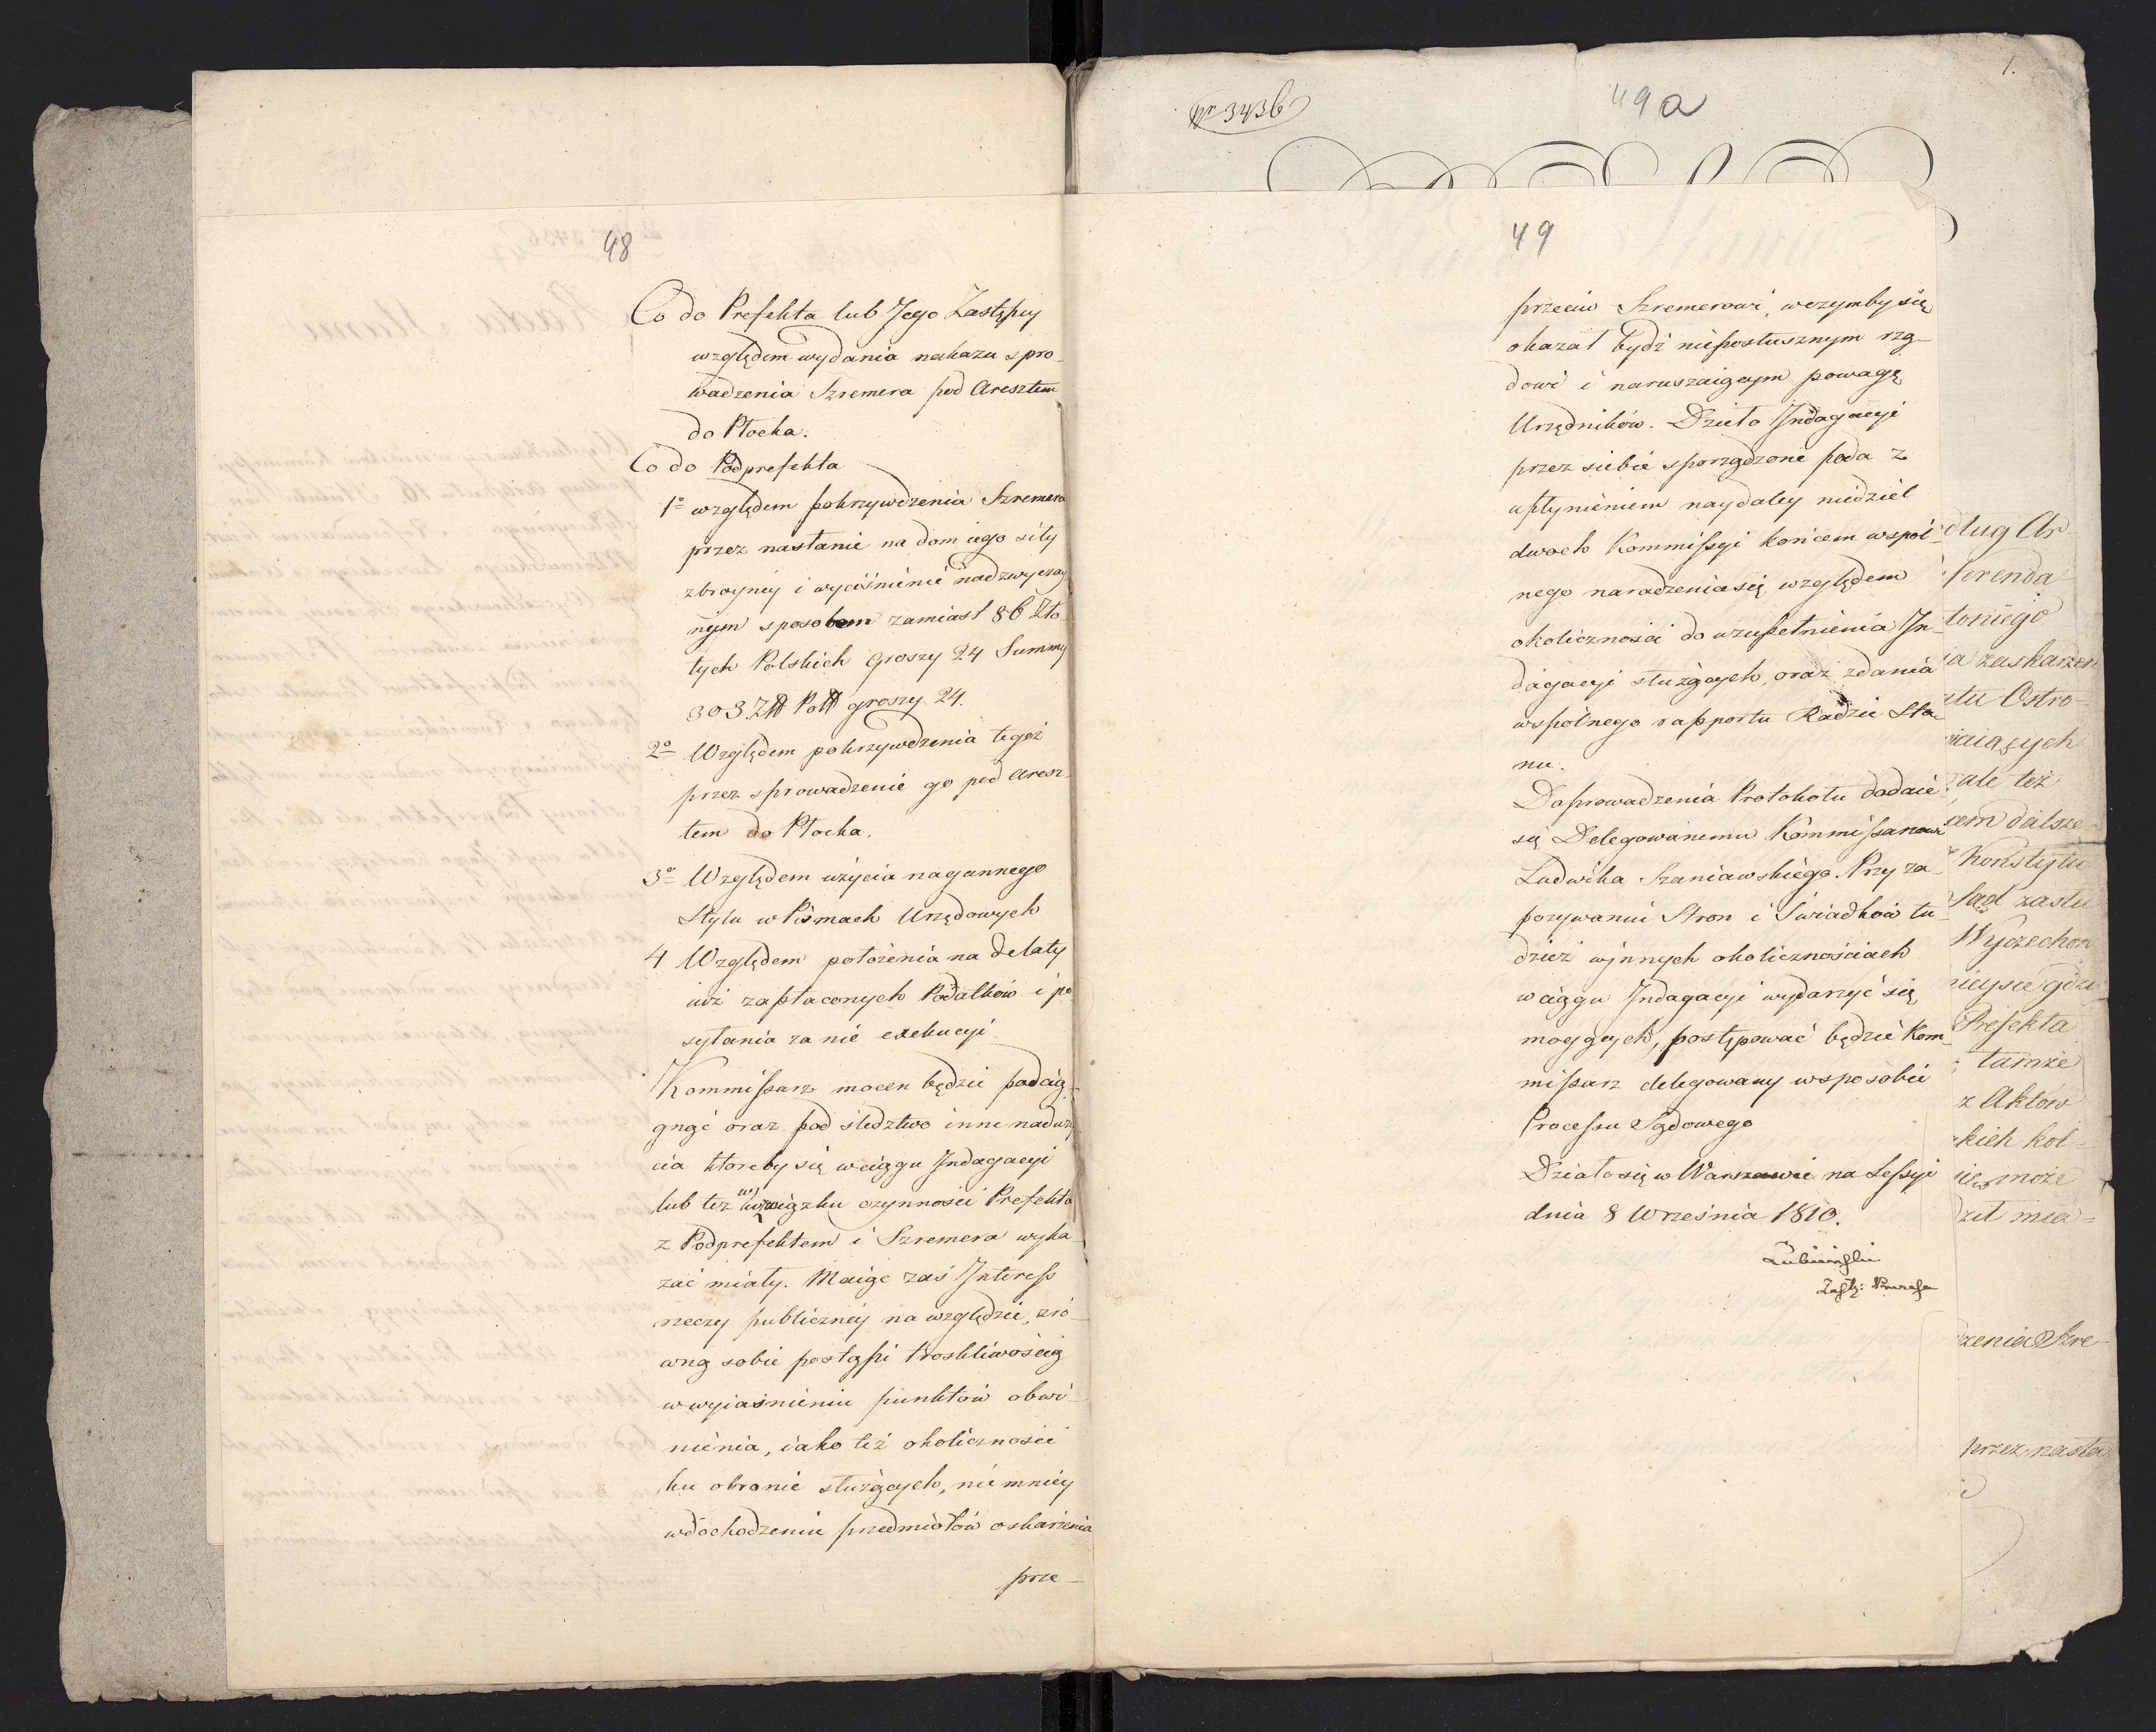 48
Co do Prefekta lub Jego Zastępcy
względem wydania nakazu spro-
wadzenia Szremera pod Aresztem
do Płocka.
Co do Podprefekta
1o względem pokrzywdzenia Szremera
przez nasłanie na dom iego siły
zbroyney i wyciśnienie nadzwyczay
nym sposobem zamiast 86 Zło-
tych Polskich groszy 24 Summy
303 Złł Poll groszy 24.
2o Względem pokrzywdzenia tegoż
przez sprowadzenie go pod Aresz-
tem do Płocka.
3o Względem użycia nagannego
Stylu w Pismach Urzędowych
4 Względem położenia na Delaty
iuż zapłaconych Podatków i po
syłania za nie exekucyi
Kommissarz mocen będzie podcią-
gnąć oraz pod śledztwo inne naduży
cia któreby się w ciągu Indagacyi
lub też w związku czynności Prefekta
z Podprefektem i Szremera wyka-
zać miały. Maiąc zaś Interess
rzeczy publiczney na względzie, zró-
wną sobie postąpi troskliwością
w wyiaśnieniu punktów obwi-
nienia, iako też okoliczności
ku obronie służących, nie mniey
w dochodzeniu przedmiotów oskarżenia
prze-
No 3436
49a
1.
49
przeciw Szremerowi, w czymby się
okazał bydź nieposłusznym rzą-
dowi i naruszaiącym powagę
Urzędników. Dzieło Indagacyi
przez siebie sporządzone poda z
upłynieniem naydaley niedziel
dwoch Kommissyi końcem wspól-
nego naradzenia się względem
okoliczności do uzupełnienia In-
dagacyi służących, oraz zdania
wspólnego rapportu Radzie Sta-
nu.
Do prowadzenia Protokołu dodaie
się Delegowanemu Kommissarzowi
Ludwika Szaniawskiego. Przy za-
pozywaniu Stron i Świadków tu-
dzież w innych okolicznościach
w ciągu Indagacyi wydarzyć się
mogących, postępować będzie Kom-
missarz delegowany w sposobie
Processu Sądowego
Działo się w Warszawie na Sessyi
dnia 8 Września 1810.
Łubieński
Zastę: Prezesa
dług Ar
ferenda-
toniego
ia zaskarżen
atu Ostro-
ale też
cem dalsze-
Konstytu
Wyczechow
mieyscu gdzie
Prefekta
tamże
z Aktów
kich kol-
może
ził mia-
zenia Szre-
przez nasła